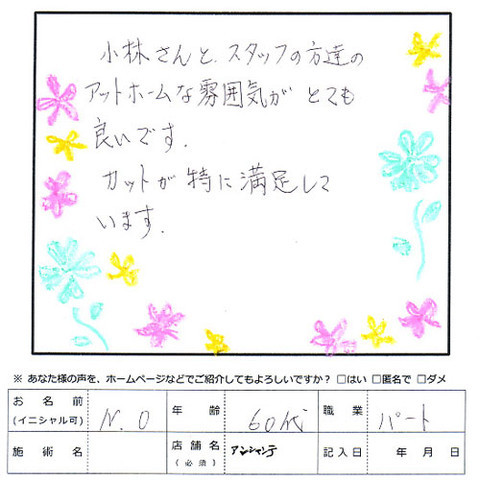 小林さんと、スタッフの方達の
アットホームな雰囲気が とても
良いです.
カットが特に満足して
います.
※ あなた様の声を、ホームページなどでご紹介してもよろしいですか？ □はい □匿名で □ダメ
お名前 (イニシャル可) N.O 年齢 60代 職業 パート
施術名 店舗名 (必須) アンシャンテ 記入日 年 月 日